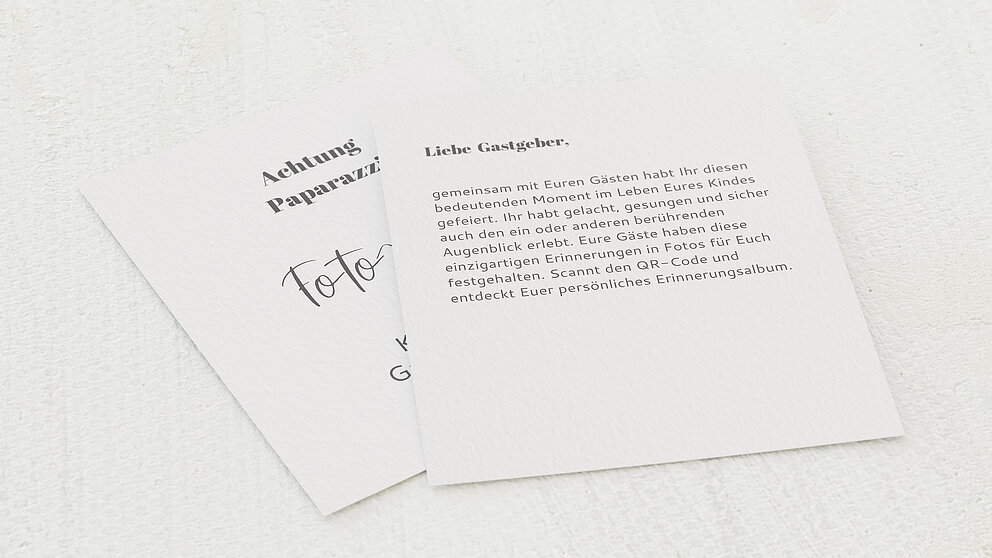 Achtung
Paparazzi
Foto-
K
G
Liebe Gastgeber,
gemeinsam mit Euren Gästen habt Ihr diesen
bedeutenden Moment im Leben Eures Kindes
gefeiert. Ihr habt gelacht, gesungen und sicher
auch den ein oder anderen berührenden
Augenblick erlebt. Eure Gäste haben diese
einzigartigen Erinnerungen in Fotos für Euch
festgehalten. Scannt den QR-Code und
entdeckt Euer persönliches Erinnerungsalbum.